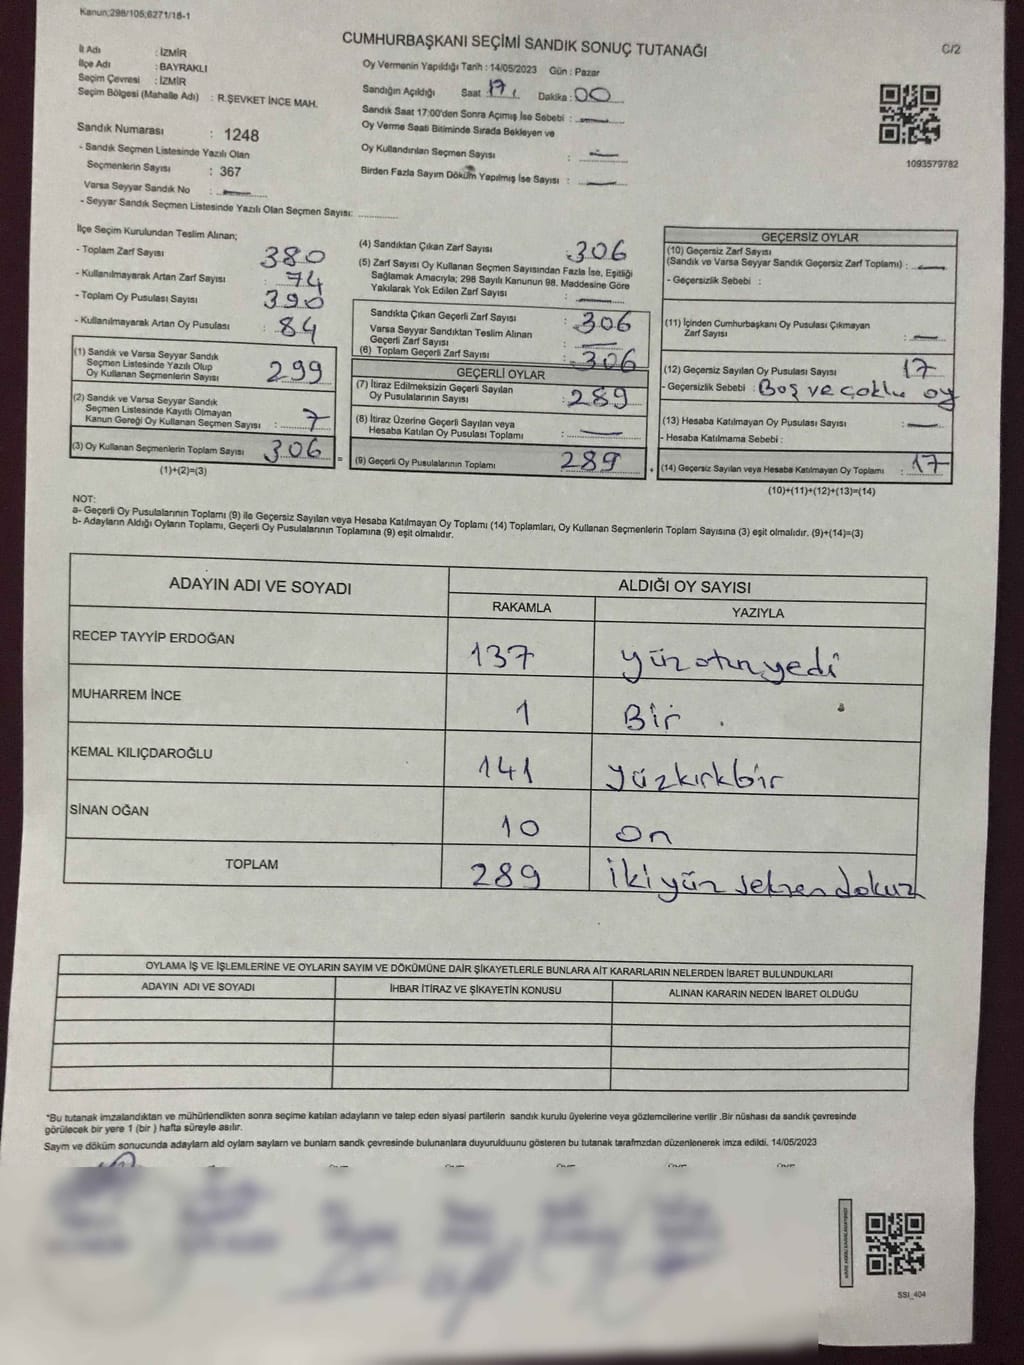 Kanun;298/105;6271/18-1
CUMHURBAŞKANI SEÇİMİ SANDIK SONUÇ TUTANAĞI
C/2
İl Adı : İZMİR
İlçe Adı : BAYRAKLI
Seçim Çevresi : İZMİR
Seçim Bölgesi (Mahalle Adı) : R.ŞEVKET İNCE MAH.
Sandık Numarası : 1248
- Sandık Seçmen Listesinde Yazılı Olan
Seçmenlerin Sayısı : 367
Varsa Seyyar Sandık No : —
- Seyyar Sandık Seçmen Listesinde Yazılı Olan Seçmen Sayısı: ............
Oy Vermenin Yapıldığı Tarih : 14/05/2023 Gün : Pazar
Sandığın Açıldığı Saat 17 : Dakika : 00
Sandık Saat 17:00'den Sonra Açımış İse Sebebi : —
Oy Verme Saati Bitiminde Sırada Bekleyen ve
Oy Kullandırılan Seçmen Sayısı : —
Birden Fazla Sayım Döküm Yapılmış İse Sayısı : —
1093579782
İlçe Seçim Kurulundan Teslim Alınan;
- Toplam Zarf Sayısı : 380
- Kullanılmayarak Artan Zarf Sayısı : 74
- Toplam Oy Pusulası Sayısı : 390
- Kullanılmayarak Artan Oy Pusulası : 84
(1) Sandık ve Varsa Seyyar Sandık
Seçmen Listesinde Yazılı Olup
Oy Kullanan Seçmenlerin Sayısı : 299
(2) Sandık ve Varsa Seyyar Sandık
Seçmen Listesinde Kayıtlı Olmayan
Kanun Gereği Oy Kullanan Seçmen Sayısı : 7
(3) Oy Kullanan Seçmenlerin Toplam Sayısı 306
(1)+(2)=(3)
(4) Sandıktan Çıkan Zarf Sayısı : 306
(5) Zarf Sayısı Oy Kullanan Seçmen Sayısından Fazla İse, Eşitliği
Sağlamak Amacıyla; 298 Sayılı Kanunun 98. Maddesine Göre
Yakılarak Yok Edilen Zarf Sayısı : —
Sandıkta Çıkan Geçerli Zarf Sayısı : 306
Varsa Seyyar Sandıktan Teslim Alınan
Geçerli Zarf Sayısı : —
(6) Toplam Geçerli Zarf Sayısı : 306
GEÇERLİ OYLAR
(7) İtiraz Edilmeksizin Geçerli Sayılan
Oy Pusulalarının Sayısı : 289
(8) İtiraz Üzerine Geçerli Sayılan ve
Hesaba Katılan Oy Pusulası Toplamı : —
= (9) Geçerli Oy Pusulalarının Toplamı 289 +
GEÇERSİZ OYLAR
(10) Geçersiz Zarf Sayısı
(Sandık ve Varsa Seyyar Sandık Geçersiz Zarf Toplamı) : —
- Geçersizlik Sebebi :
(11) İçinden Cumhurbaşkanı Oy Pusulası Çıkmayan
Zarf Sayısı : —
(12) Geçersiz Sayılan Oy Pusulası Sayısı : 17
- Geçersizlik Sebebi : Boş ve çoklu oy
(13) Hesaba Katılmayan Oy Pusulası Sayısı : —
- Hesaba Katılmama Sebebi :
(14) Geçersiz Sayılan veya Hesaba Katılmayan Oy Toplamı : 17
(10)+(11)+(12)+(13)=(14)
NOT:
a- Geçerli Oy Pusulalarının Toplamı (9) ile Geçersiz Sayılan veya Hesaba Katılmayan Oy Toplamı (14) Toplamları, Oy Kullanan Seçmenlerin Toplam Sayısına (3) eşit olmalıdır. (9)+(14)=(3)
b- Adayların Aldığı Oyların Toplamı, Geçerli Oy Pusulalarının Toplamına (9) eşit olmalıdır.
ADAYIN ADI VE SOYADI ALDIĞI OY SAYISI
RAKAMLA YAZIYLA
RECEP TAYYİP ERDOĞAN 137 yüz otuz yedi
MUHARREM İNCE 1 Bir .
KEMAL KILIÇDAROĞLU 141 yüzkırkbir
SİNAN OĞAN 10 on
TOPLAM 289 iki yüz seksen dokuz
OYLAMA İŞ VE İŞLEMLERİNE VE OYLARIN SAYIM VE DÖKÜMÜNE DAİR ŞİKAYETLERLE BUNLARA AİT KARARLARIN NELERDEN İBARET BULUNDUKLARI
ADAYIN ADI VE SOYADI İHBAR İTİRAZ VE ŞİKAYETİN KONUSU ALINAN KARARIN NEDEN İBARET OLDUĞU
*Bu tutanak imzalandıktan ve mühürlendikten sonra seçime katılan adayların ve talep eden siyasi partilerin sandık kurulu üyelerine veya gözlemcilerine verilir .Bir nüshası da sandık çevresinde
görülecek bir yere 1 (bir ) hafta süreyle asılır.
Sayım ve döküm sonucunda adayların ald oyların sayıları ve bunların sandk çevresinde bulunanlara duyurulduunu gösteren bu tutanak tarafmzdan düzenlenerek imza edildi. 14/05/2023
SSI_404